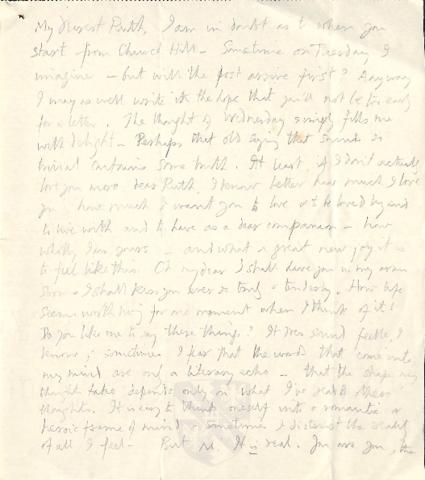 My Dearest Ruth, I am in doubt as to when you
start from Church Hill – Sometime on Tuesday I
imagine – but will the post arrive first? Anyway
I may as well write in the hope that you'll not be too early
for a letter. The thought of Wednesday simply fills me
with delight – Perhaps that old saying that sounds so
trivial contains some truth. At least, if I don't actually
love you more dear Ruth, I know better how much I love
you, how much I want you to love & to be loved by and
to live with and to have as a dear companion – how
wholly I am yours – and what a great new joy it is
to feel like this. Oh my dear I shall have you in my arms
soon – I shall kiss you ever so truly & tenderly. How life
seems worth living for one moment when I think of it!
Do you like me to say these things? It does sound feeble, I
know; sometimes I fear that the words that come into
my mind are only a literary echo – that the shape my
thought takes depends only on what I've read
thoughts. It is easy to think oneself into a romantic or
heroic frame of mind – sometimes I distrust the reality
of all I feel – But no. It is real. You are you, the